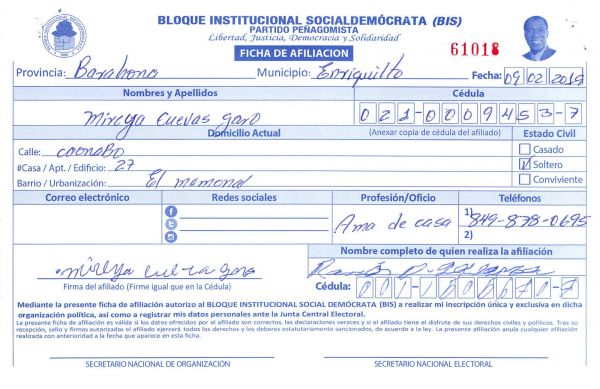 BLOQUE INSTITUCIONAL SOCIALDEMÓCRATA (BIS)
PARTIDO PEÑAGOMISTA
Libertad, Justicia, Democracia y Solidaridad
FICHA DE AFILIACION
61018
Provincia: Barahona Municipio: Enriquillo Fecha: 09 02 2019
Nombres y Apellidos Cédula
Mireya Cuevas Garo 021-0009453-7
Domicilio Actual (Anexar copia de cédula del afiliado) Estado Civil
Calle: caonabo Casado
#Casa / Apt. / Edificio: 27 Soltero
Barrio / Urbanización: El mamonal Conviviente
Correo electrónico Redes sociales Profesión/Oficio Teléfonos
Ama de casa 1) 849-878-0695
2)
Nombre completo de quien realiza la afiliación
mireya cuevas garo Ramón
Firma del afiliado (Firme igual que en la Cédula) Cédula:
Mediante la presente ficha de afiliación autorizo al BLOQUE INSTITUCIONAL SOCIAL DEMÓCRATA (BIS) a realizar mi inscripción única y exclusiva en dicha
organización política, así como a registrar mis datos personales ante la Junta Central Electoral.
La presente ficha de afiliación es válida si los datos ofrecidos por el afiliado son correctos, las declaraciones veraces y si el afiliado tiene el disfrute de sus derechos civiles y políticos. Tras su
recepción, sello y firmas autorizadas el afiliado ejercerá todos los derechos y los deberes estatutariamente sancionados, de acuerdo a la ley. La presente afiliación anula cualquier afiliación
realizada con anterioridad a la fecha que aparece en esta ficha.
SECRETARIO NACIONAL DE ORGANIZACIÓN SECRETARIO NACIONAL ELECTORAL